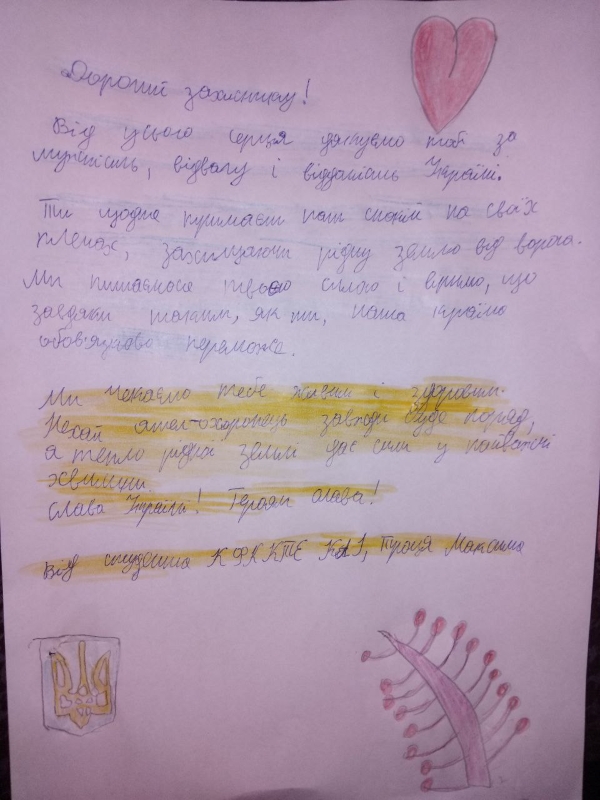 Дорогий захиснику!
Від усього серця дякуємо тобі за
мужність, відвагу і відданість Україні.
Ти щодня тримаєш наш спокій на своїх
плечах, захищаючи рідну землю від ворога.
Ми пишаємося твоєю силою і віримо, що
завдяки таким, як ти, наша Україна
обов'язково переможе.
Ми чекаємо тебе живим і здоровим.
Нехай ангел-охоронець завжди буде поряд,
а тепло рідної землі дає сили у найважчі
хвилини.
Слава Україні! Героям слава!
Від студента КФККТЕ КАІ, Максима